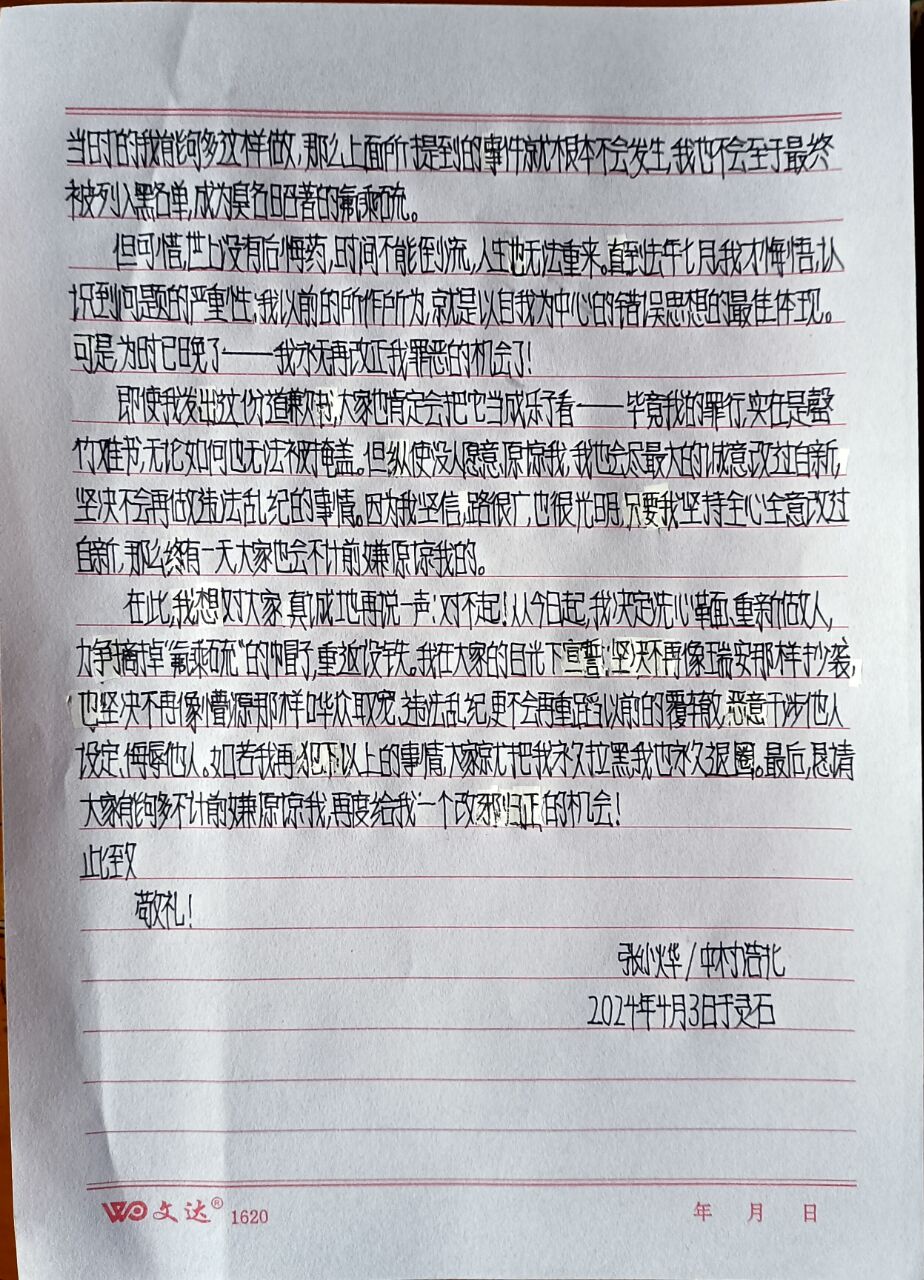 当时的我能够多这样做，那么上面所提到的事件就根本不会发生，我也不会至于最终
被列入黑名单，成为臭名昭著的氟乘硫。
但可惜，世上没有后悔药，时间不能倒流，人生也无法重来。直到去年七月，我才悔悟，认
识到问题的严重性；我以前的所作所为，就是以自我为中心的错误思想的最佳体现。
可是，为时已晚了——我永无再改正我罪恶的机会了！
即使我发出这份道歉书，大家也肯定会把它当成乐子看——毕竟我的罪行，实在是罄
竹难书，无论如何也无法被掩盖。但纵使没人愿意原谅我，我也会尽最大的诚意改过自新，
坚决不会再做违法乱纪的事情。因为我坚信，路很广，也很光明，只要我坚持全心全意改过
自新，那么终有一天大家也会不计前嫌原谅我的。
在此，我想对大家真诚地再说一声：对不起！从今日起，我决定洗心革面、重新做人，
力争摘掉“氟乘硫”的帽子，重返设铁。我在大家的目光下宣誓：坚决不再像瑞安那样抄袭，
也坚决不再像懵源那样哗众取宠、违法乱纪，更不会再重蹈以前的覆辙，恶意干涉他人
设定、侮辱他人。如若我再犯下以上的事情，大家就把我永久拉黑，我也永久退圈。最后，恳请
大家能够多不计前嫌原谅我，再度给我一个改邪归正的机会！
此致
敬礼！
张小烨/中村浩北
2024年4月3日于灵石
文达® 1620
年 月 日